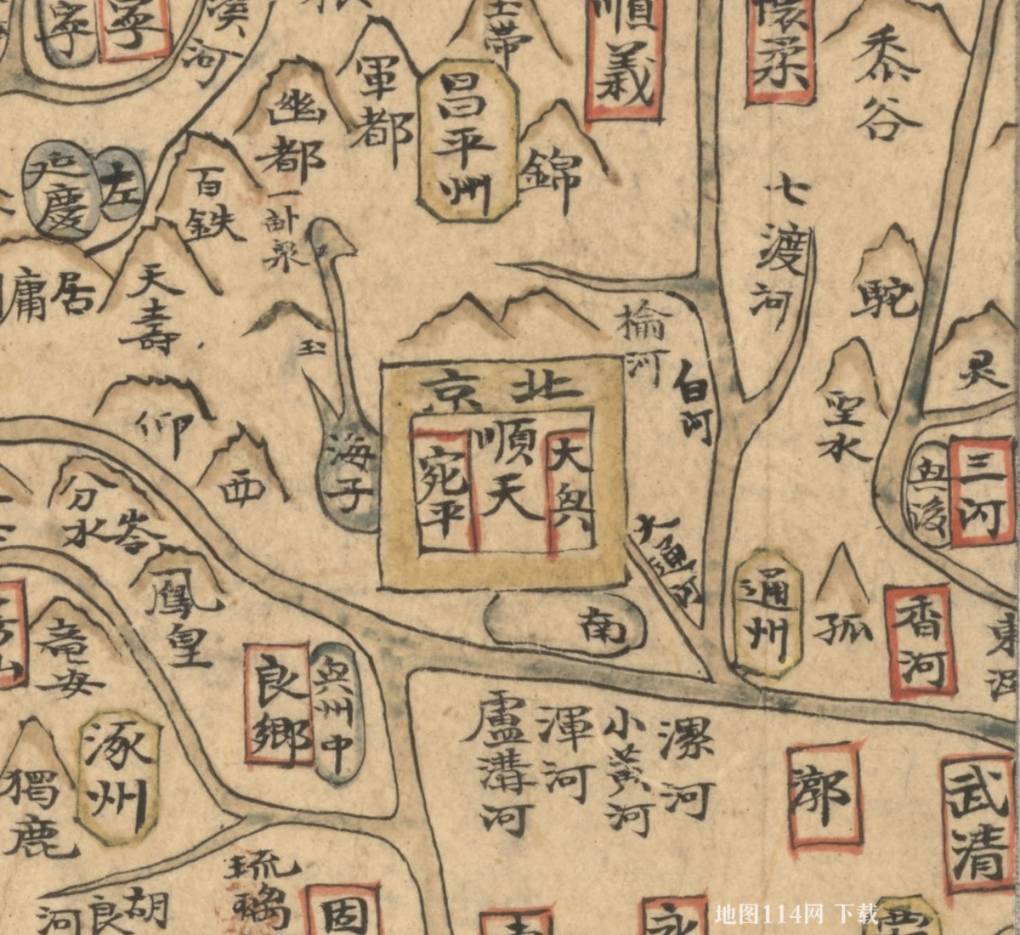 順義
懷柔
黍谷
軍都
昌平州
幽都
錦
延慶
左
百鉄
一畝泉
七渡河
居庸
天壽
玉
駝
榆河
白河
灵
北京
順天
大興
宛平
海子
仰
西
聖水
三河
分水岺
大通河
通州
孤
香河
鳳皇
南
良鄉
興州中
涿州
獨鹿
盧溝河
渾河
小黃河
漯河
漷
武清
琉璃
胡良河
固
永
地图114网 下载